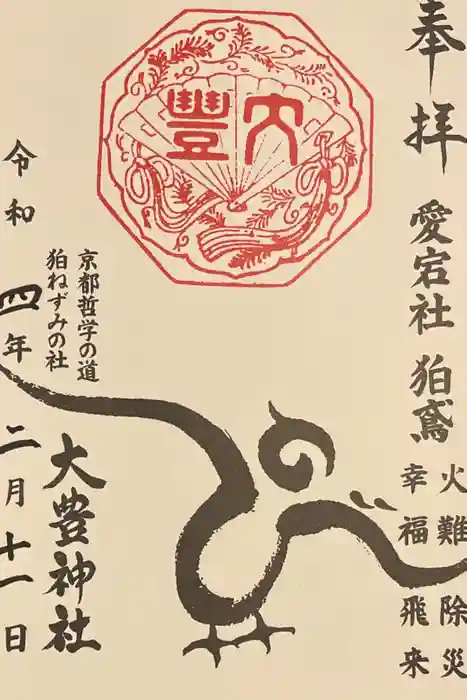 奉拝
愛宕社 狛鳶
火難除災
幸福飛来
大豐
京都哲学の道
狛ねずみの社
大豊神社
令和四年二月十一日